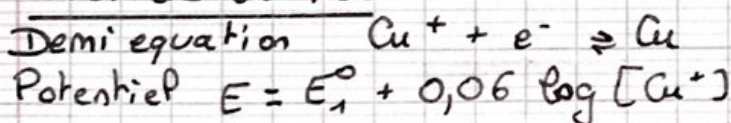 Demi equation Cu⁺ + e⁻ ⇌ Cu
Potentiel E = E₁° + 0,06 log [Cu⁺]